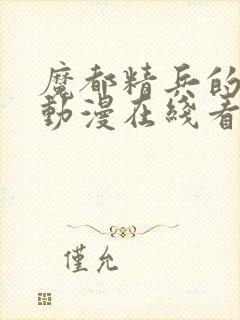 魔都精兵的
動漫在綫看
僅允